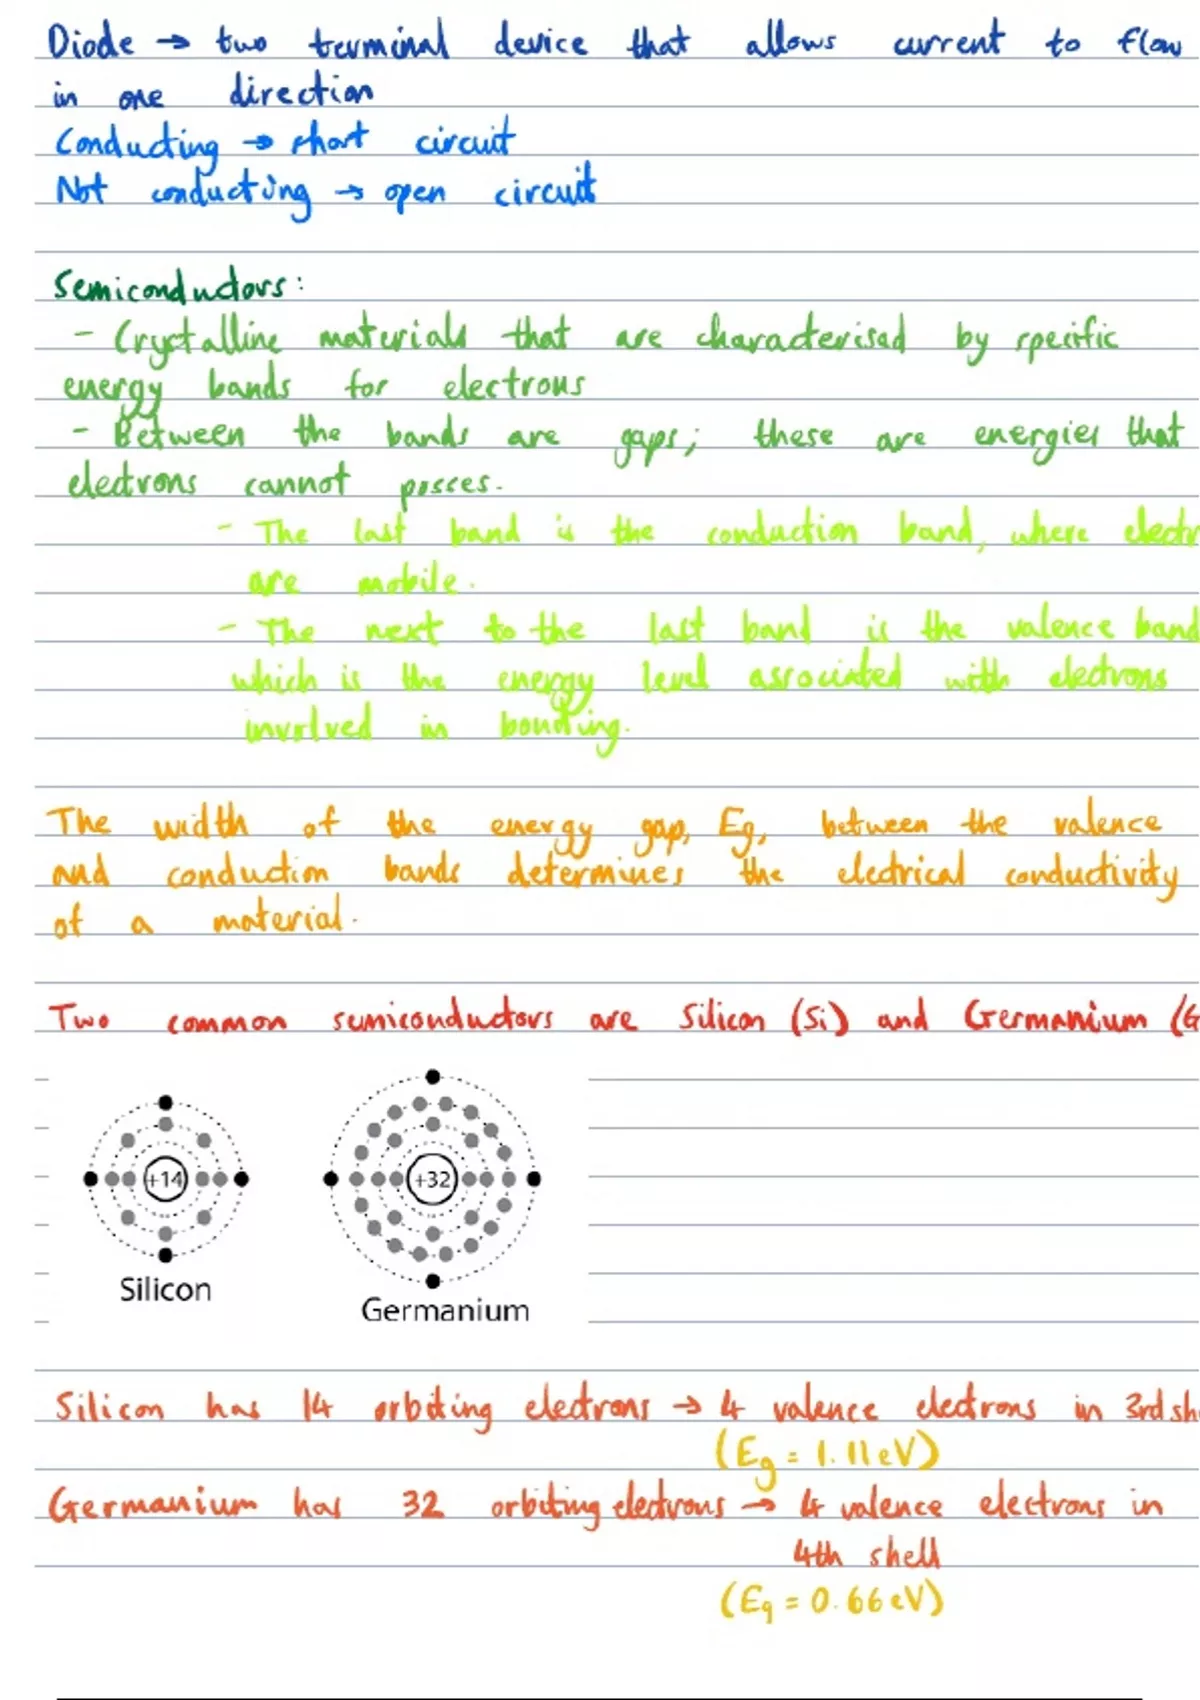 Diode → two terminal device that allows current to flow
in one direction
Conducting → short circuit
Not conducting → open circuit
Semiconductors:
- Crystalline materials that are characterised by specific
energy bands for electrons
- Between the bands are gaps; these are energies that
electrons cannot posses.
- The last band is the conduction band, where electr
are mobile.
- The next to the last band is the valence band
which is the energy level associated with electrons
involved in bonding.
The width of the energy gap, Eg, between the valence
and conduction bands determines the electrical conductivity
of a material.
Two common semiconductors are Silicon (Si) and Germanium (G
+14
+32
Silicon
Germanium
Silicon has 14 orbiting electrons → 4 valence electrons in 3rd sh
(Eg = 1.11eV)
Germanium has 32 orbiting electrons → 4 valence electrons in
4th shell
(Eg = 0.66eV)